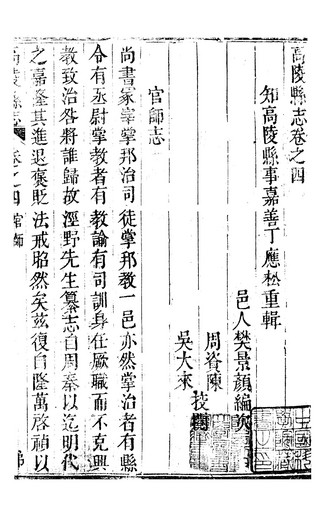 高陵縣志卷之四
知高陵縣事嘉善丁應松重輯
邑人樊景顏編次
周脊陳
吳大來
技
官師志
尚書冢宰掌邦治司徒掌邦教一邑亦然掌治者有縣
令有丞尉掌教者有教諭有司訓身在厥職而不克興
教致治咎將誰歸故涇野先生纂志自周秦以迄明代
之嘉隆其進退褒貶法戒昭然矣茲復自隆萬啓禎以
高陵縣志
卷之四 官師